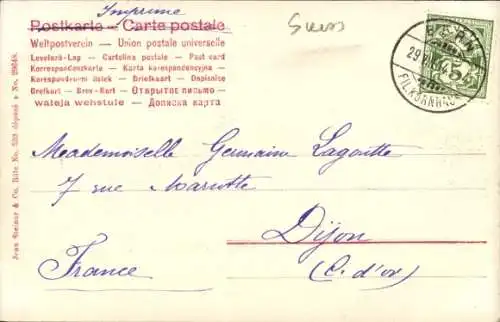 Imprimé
Suiss
Postkarte — Carte postale
Weltpostverein — Union postale universelle
Levelező-Lap — Cartolina postale — Post card
Korrespondenzkarte — Karta korespondencyjna
Korespondenční lístek — Briefkaart — Dopisnice
Brefkort — Brev-Kort — Открытое письмо
wataja wehstule — Дописна карта
BERN
29
FIL.KORNHAUS
5
Mademoiselle Germaine Lagoutte
7 rue Mariotte
Dijon
France
(C. d'or)
Jean Steiner & Co.